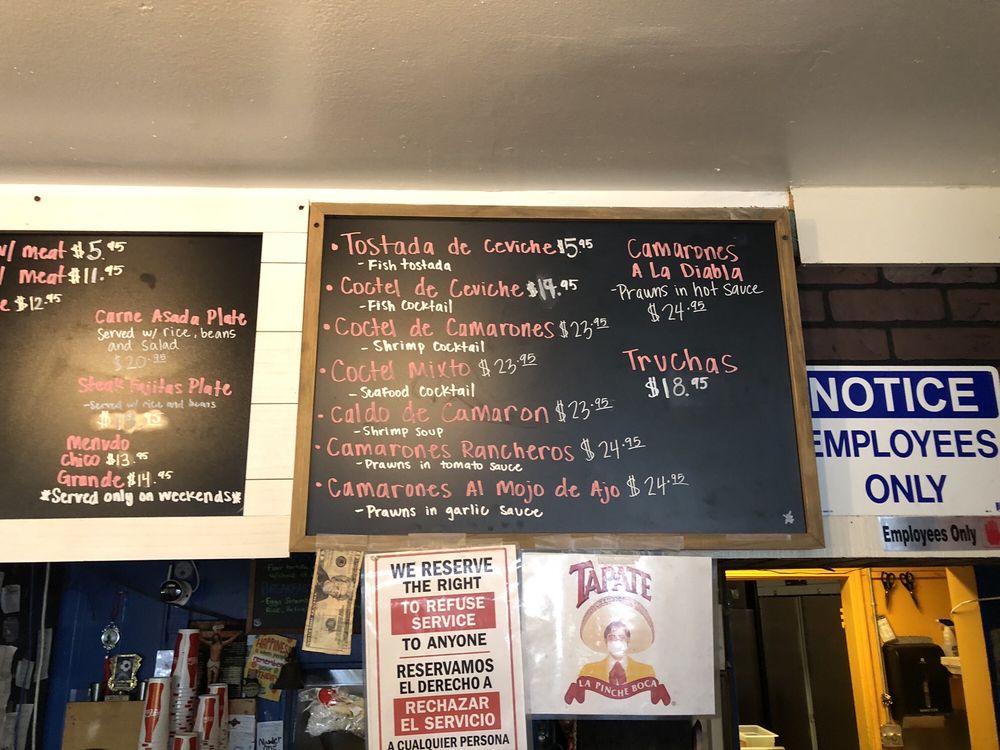 w/ meat $5.95
meat $11.95
$12.95
Carne Asada Plate
Served w/ rice, beans
and salad
$20.95
Steak Fajitas Plate
-Served w/ rice and beans
Menudo
Chico $13.95
Grande $14.95
*Served only on weekends*
• Tostada de Ceviche $5.95
- Fish tostada
• Coctel de Ceviche $19.95
- Fish cocktail
• Coctel de Camarones $23.95
- Shrimp cocktail
• Coctel Mixto $23.95
- Seafood cocktail
• Caldo de Camaron $23.95
- Shrimp soup
• Camarones Rancheros $24.95
- Prawns in tomato sauce
• Camarones Al Mojo de Ajo $24.95
- Prawns in garlic sauce
Camarones
A La Diabla
-Prawns in hot sauce
$24.95
Truchas
$18.95
NOTICE
EMPLOYEES
ONLY
Employees Only
WE RESERVE
THE RIGHT
TO REFUSE
SERVICE
TO ANYONE
RESERVAMOS
EL DERECHO A
RECHAZAR
EL SERVICIO
A CUALQUIER PERSONA
TAPATE
LA PINCHE BOCA